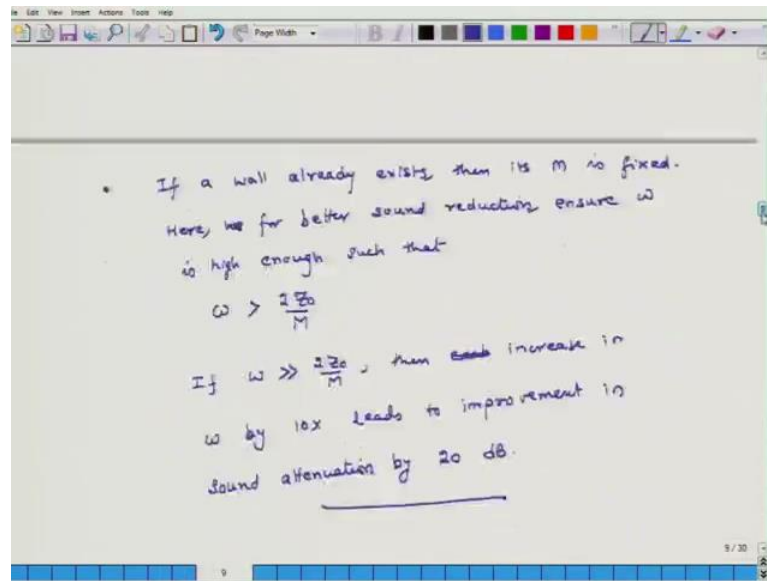 Edit View Insert Actions Tools Help
Page Width
B I
• If a wall already exists then its M is fixed.
Here, for better sound reduction ensure ω
is high enough such that
ω > 2Z₀/M
If ω >> 2Z₀/M, then increase in
ω by 10x leads to improvement in
sound attenuation by 20 dB.
9 / 30
9